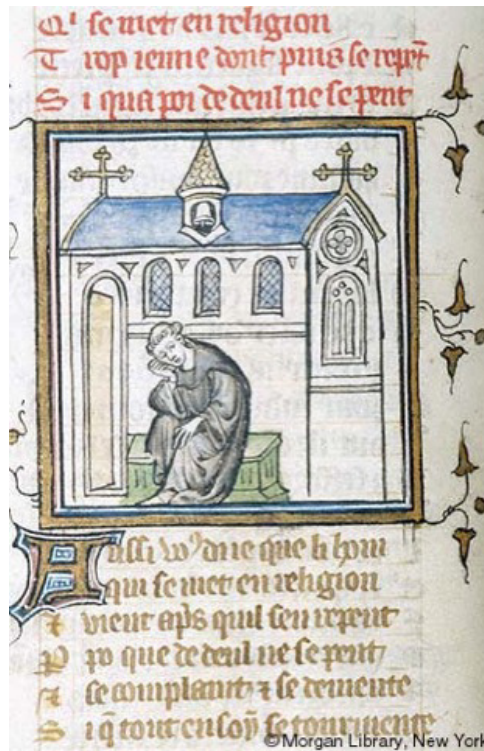 Qi se met en religion
Trop ienne dont puis se repēt
Si qua poi de deul ne se pent
Aussi voꝰ di ie que li hom
qui se met en religion
⁊ vient ap̄s quil sen repent
P po que de deul ne se pent
⁊ se complaint ⁊ se demente
Si q̄ tout en soy se tourmente
©Morgan Library, New York